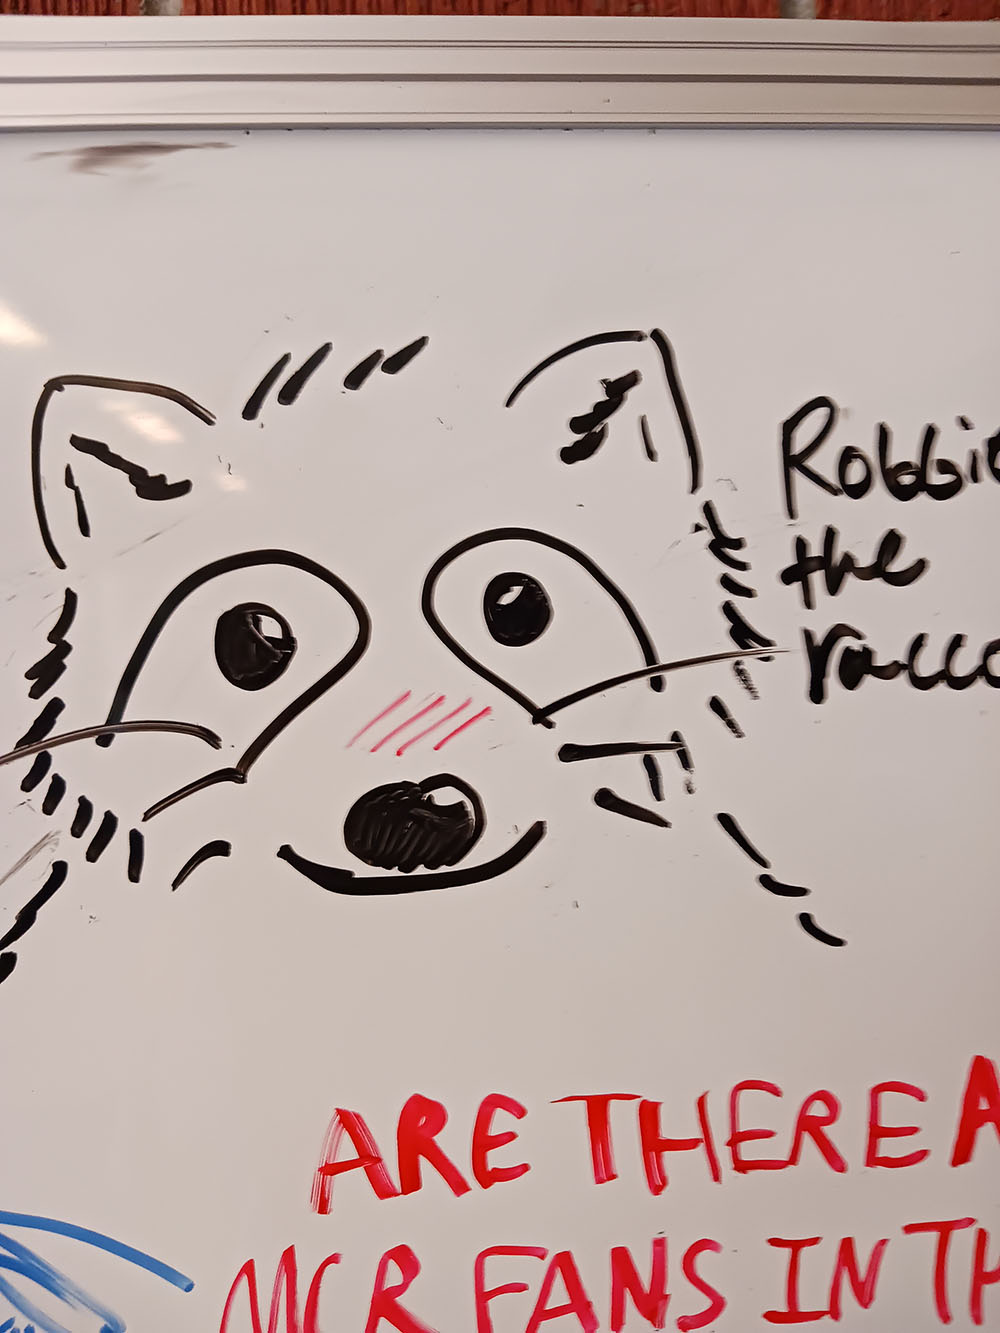 Robbie
the
racco
ARE THERE A
MCR FANS IN TH